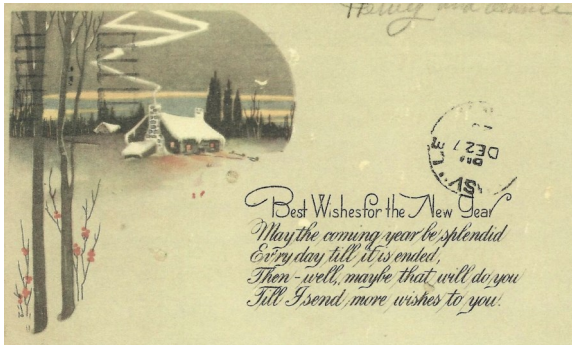 Henry and
DEC 27
SVILLE
Best Wishes for the New Year
May the coming year be splendid
Ev'ry day till it is ended,
Then - well, maybe that will do you
Till I send more wishes to you.